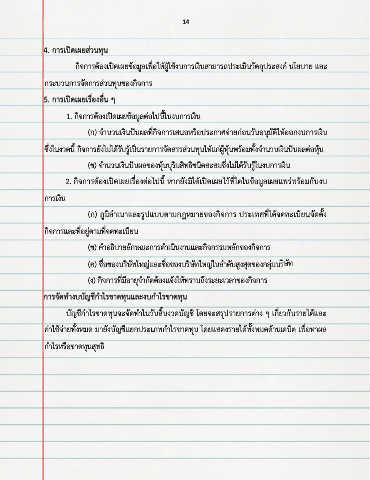 14
4. การเปิดเผยส่วนทุน
กิจการต้องเปิดเผยข้อมูลเพื่อให้ผู้ใช้งบการเงินสามารถประเมินวัตถุประสงค์ นโยบาย และ
กระบวนการจัดการส่วนทุนของกิจการ
5. การเปิดเผยเรื่องอื่น ๆ
1. กิจการต้องเปิดเผยข้อมูลต่อไปนี้ในงบการเงิน
(ก) จำนวนเงินปันผลที่กิจการเสนอหรือประกาศจ่ายก่อนวันอนุมัติให้ออกงบการเงิน
ซึ่งในงวดนี้ กิจการยังไม่ได้รับรู้เป็นรายการจัดสรรส่วนทุนให้แก่ผู้หุ้นพร้อมทั้งจำนวนเงินปันผลต่อหุ้น
(ข) จำนวนเงินปันผลของหุ้นบุริมสิทธิชนิดสะสมซึ่งไม่ได้รับรู้ในงบการเงิน
2. กิจการต้องเปิดเผยเรื่องต่อไปนี้ หากยังมิได้เปิดเผยไว้ที่ใดในข้อมูลเผยแพร่พร้อมกับงบ
การเงิน
(ก) ภูมิลำเนาและรูปแบบตามกฎหมายของกิจการ ประเทศที่ได้จดทะเบียนจัดตั้ง
กิจการและที่อยู่ตามที่จดทะเบียน
(ข) คำอธิบายลักษณะการดำเนินงานและกิจกรรมหลักของกิจการ
(ค) ชื่อของบริษัทใหญ่และชื่อของบริษัทใหญ่ในลำดับสูงสุดของกลุ่มบริษัท
(ง) กิจการที่มีอายุจำกัดต้องแจ้งให้ทราบถึงระยะเวลาของกิจการ
การจัดทำงบบัญชีกำไรขาดทุนและงบกำไรขาดทุน
บัญชีกำไรขาดทุนจะจัดทำในวันสิ้นงวดบัญชี โดยจะสรุปรายการต่าง ๆ เกี่ยวกับรายได้และ
ค่าใช้จ่ายทั้งหมด มายังบัญชีแยกประเภทกำไรขาดทุน โดยแสดงรายได้ทั้งหมดด้านเครดิต เพื่อหาผล
กำไรหรือขาดทุนสุทธิ